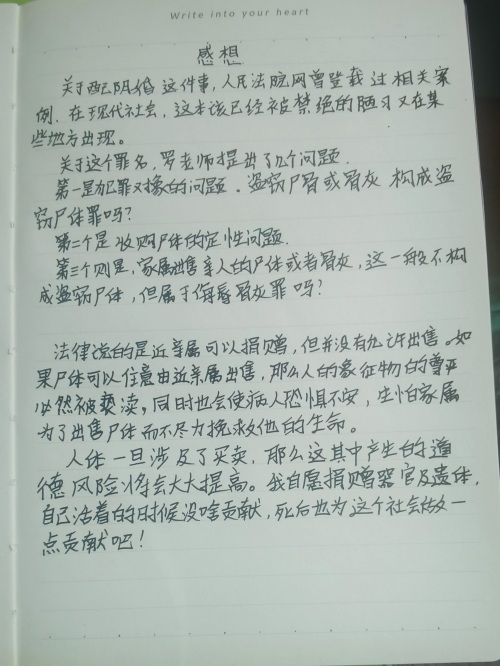 Write into your heart
感想
关于配阴婚这件事，人民法院网曾登载过相关案
例．在现代社会，这本该已经被禁绝的陋习又在某
些地方出现。
关于这个罪名，罗老师提出了几个问题．
第一是犯罪对象的问题。盗窃尸骨或骨灰 构成盗
窃尸体罪吗？
第二个是收购尸体的定性问题．
第三个则是，家属出售亲人的尸体或者骨灰，这一般不构
成盗窃尸体，但属于侮辱骨灰罪吗？
法律说的是近亲属可以捐赠，但并没有允许出售。如
果尸体可以任意由近亲属出售，那么人的象征物的尊严
必然被亵渎，同时也会使病人恐惧不安，生怕家属
为了出售尸体而不尽力挽救他的生命。
人体一旦涉及了买卖，那么这其中产生的道
德风险将会大大提高。我自愿捐赠器官及遗体，
自己活着的时候没啥贡献，死后也为这个社会做一
点贡献吧！